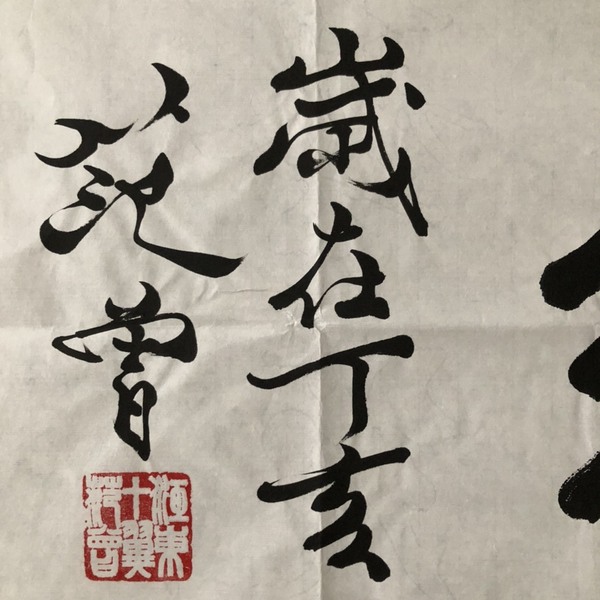 歲在丁亥
范曾
江東
十翼
范曾